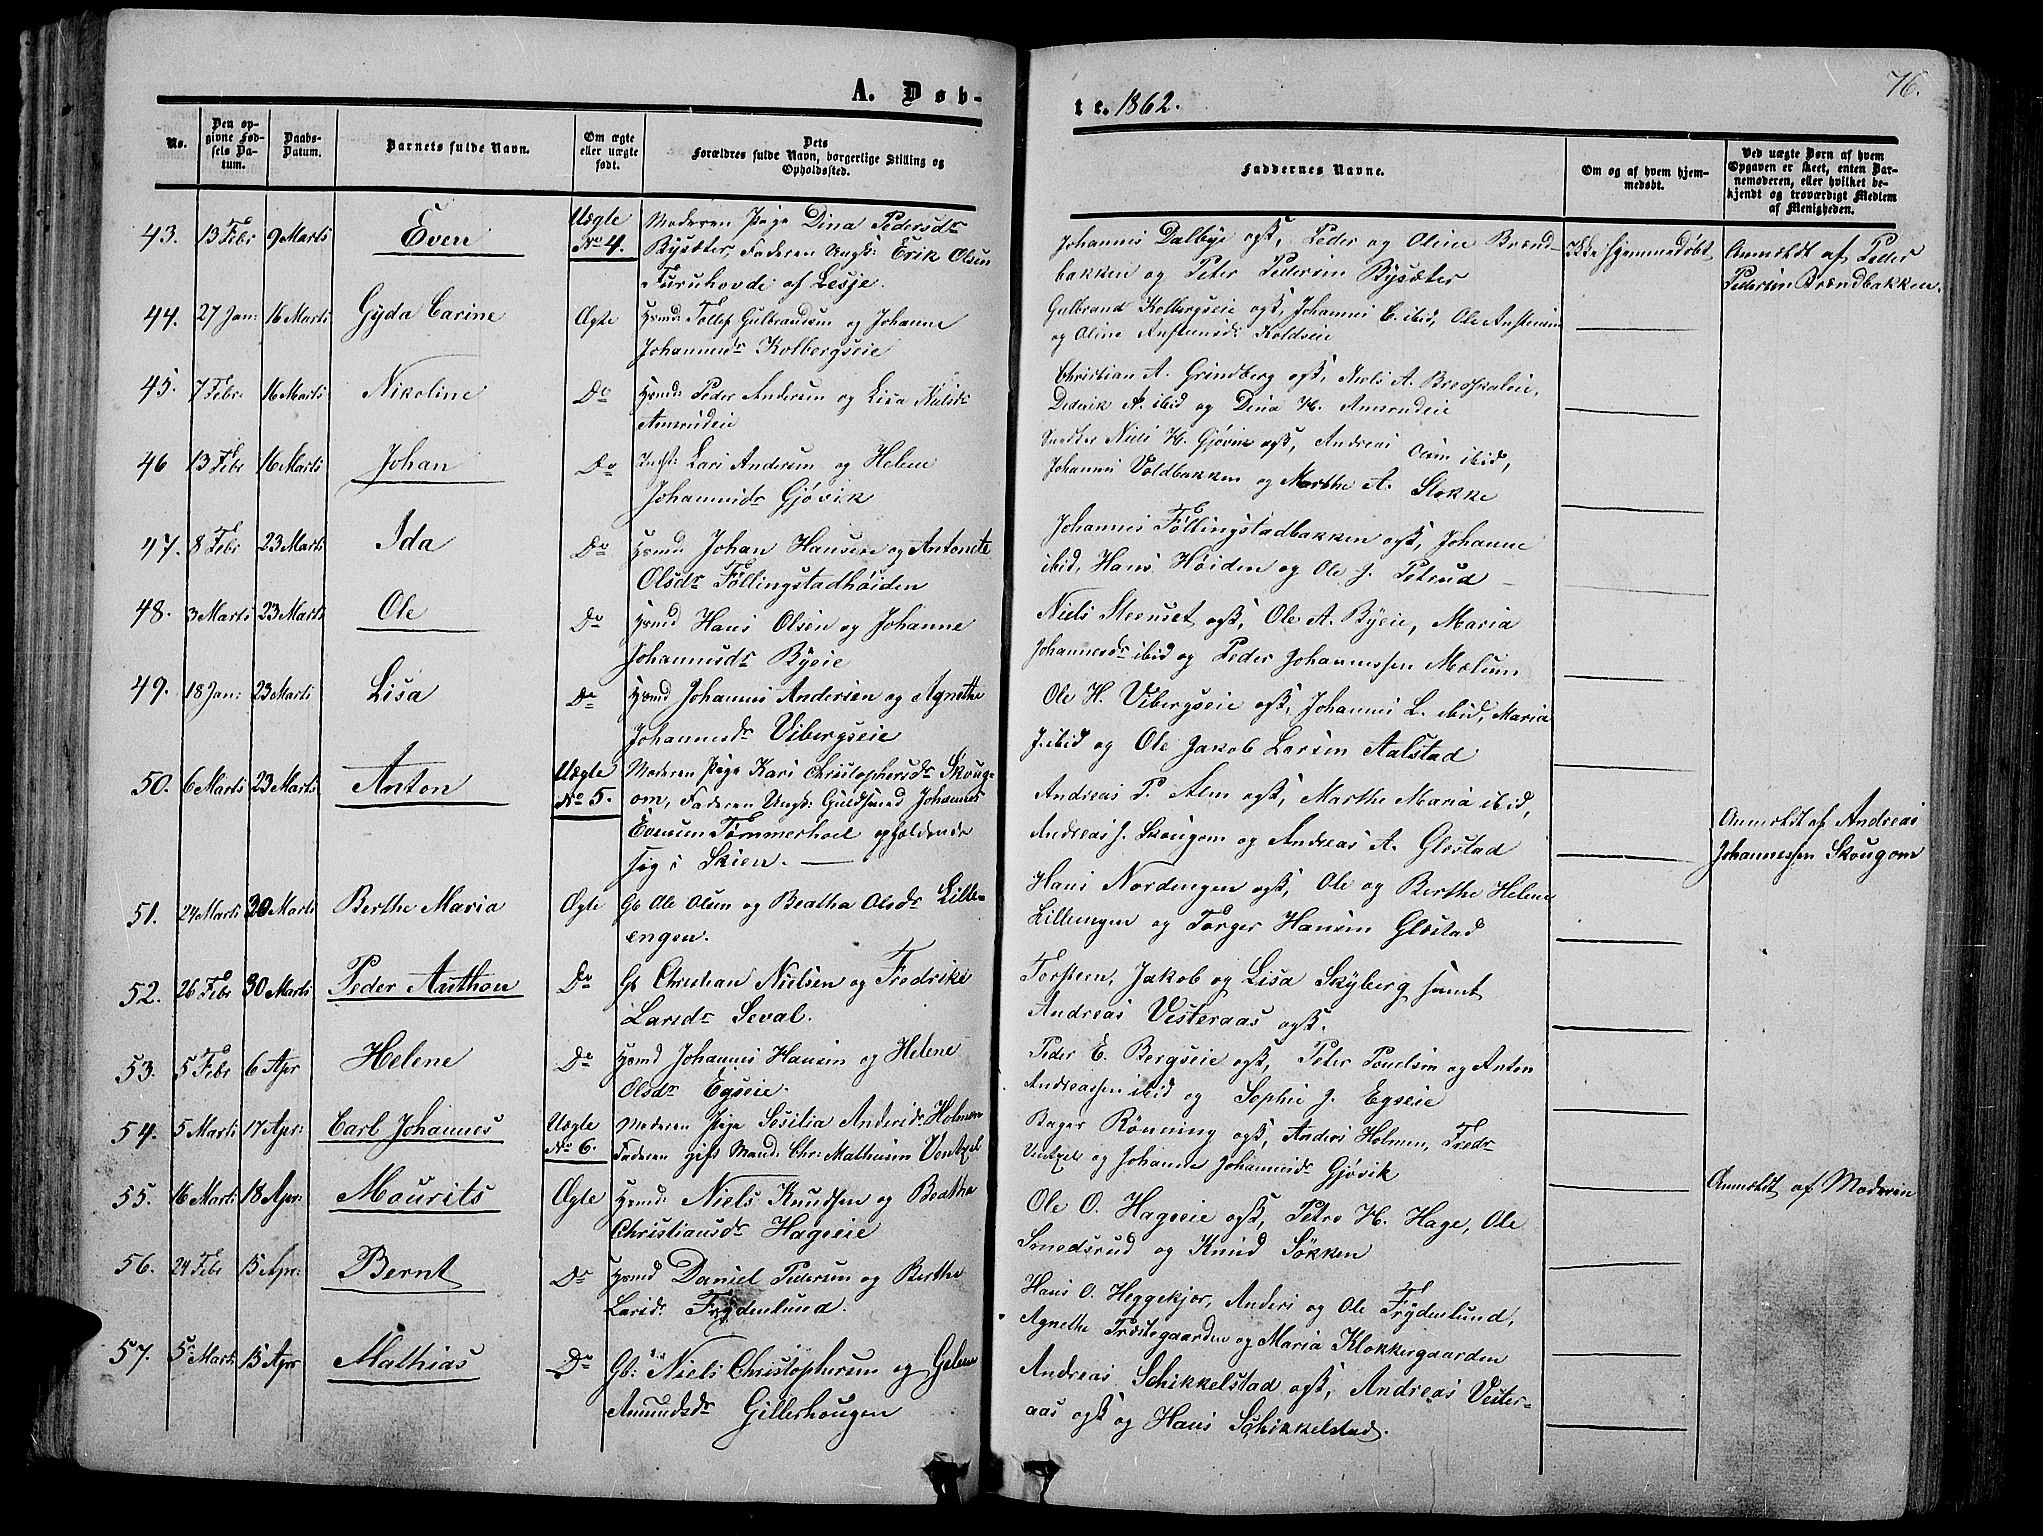 76.
A. Døb-
te. 1862.
No.
Den op-
givne Fød-
sels Da-
tum.
Daabs-
Datum.
Barnets fulde Navn.
Om ægte
eller uægte
født.
Dets
Forældres fulde Navn, borgerlige Stilling og
Opholdssted.
Faddernes Navne.
Om og af hvem hjem-
medøbt.
Ved uægte Børn af hvem
Opgaven er skeet, enten Bar-
nemoderen, eller hvilket be-
kjendt og troværdigt Medlem
af Menigheden.
43. 13 Febr 9 Marts Even Uægte No 4. Moderen Pige Dina Pedersdr
Bysæter, Faderen Ungk: Erik Olsen
Furuhovde af Lesje.
Johannes Dalbye ogk, Peder og Oline Brænd-
bakken og Peter Pedersen Bysæter
Ikke hjemmedøbt
Anmeldt af Peder
Pedersen Brændbakken.
44. 27 Jan: 16 Marts Gyda Carine Ægte Hsmd: Tollef Gulbrandsen og Johanne
Johannesdr Kolbergseie
Gulbrand Kolbergseie ogk, Johannes E. ibid, Ole Anstensen
og Oline Anstensdr: Koldseie
45. 7 Febr. 16 Marts Nikoline Do Hsmd: Peder Andersen og Lisa Nielsdr
Amrudeie
Christian A. Grindberg ogk, Niels A.
Dedrik A. ibid og Dina H. Amrudeie
46 13 Febr 16 Marts Johan Do Indst: Lars Andersen og Helene
Johannesdr Gjøvik
Niels H. Gjøvik ogk, Andreas Olsen ibid,
Johannes Voldbakken og Marthe A. Slokke
47. 8 Febr 23 Marts Ida Do Hsmd: Johan Hansen og Antonete
Olsdr Føllingstadhøiden
Johannes Føllingstadbakken ogk, Johanne
ibid, Hans Høiden og Ole J. Petrud
48. 3 Marts 23 Marts Ole Do Hsmd Hans Olsen og Johanne
Johannesdr Byeie
Niels Steenset ogk, Ole A. Byeie, Maria
Johannesdr ibid og Peder Johannessen Mælum
49. 18 Jan: 23 Marts Lisa Do Hsmd Johannes Andersen og Agnethe
Johannesdr Vibergseie
Ole H. Vibergseie ogk, Johannes L. ibid, Maria
J. ibid og Ole Jakob Larsen Aalstad
50. 6 Marts 23 Marts Anton Uægte No 5. Moderen Pige Kari Christophersdr Skoug-
om, Faderen Ungk: Guldsmed Johannes
Evensen Tømmerhoel opholdende
sig i Skien.
Andreas P. Alm ogk, Marthe Maria ibid,
Andreas J. Skougom og Andreas A. Glæstad
Anmeldt af Andreas
Johannessen Skougom
51. 24 Marts 30 Marts Berthe Maria Ægte Gb Ole Olsen og Beatha Olsdr Lille-
engen.
Hans Nordengen ogk, Ole og Berthe Helene
Lilleengen og Torger Hansen Glæstad
52. 26 Febr 30 Marts Peder Anthon Do Gb Christian Nielsen og Fredrike
Larsdr Seval.
Torsteen, Jakob og Lisa Skyberg samt
Andreas Vesteraas ogk.
53. 5 Febr 6 Apr Helene Do Hsmd Johannes Hansen og Helene
Olsdr Egseie.
Peder E. Bergseie ogk, Peter Poulsen og Anton
Andreassen ibid og Sophie J. Egseie
54. 5 Marts 17 Apr: Carl Johannes Uægte No 6. Moderen Pige Sesilia Andersdr. Holmen
Faderen gift Mand: Chr: Mathisen Ventzel
Bager Rønning ogk, Anders Holmen, Fredr
Ventzel og Johanne Johannesdr Gjøvik
Anmeldt af Moderen
55. 16 Marts 18 Apr: Mourits Ægte Hsmd: Niels Knudsen og Beatha
Christiansdr Hageeie
Ole O. Hageeie ogk, Petro H. Hage, Ole
Smedsrud og Knud Søkken
56. 24 Febr 13 Apr: Bernt Do Hsmd Daniel Pedersen og Berthe
Larsdr. Frydenlund.
Hans O. Heggekjær, Anders og Ole Frydenlund,
Agnethe Præstegaarden og Maria Klokkergaarden
57. 5 Marts 13 Apr Mathias Do Gb: Niels Christophersen og Helene
Amundsdr Gillerhougen
Andreas Schikkelstad ogk, Andreas Vester-
aas ogk og Hans Schikkelstad.